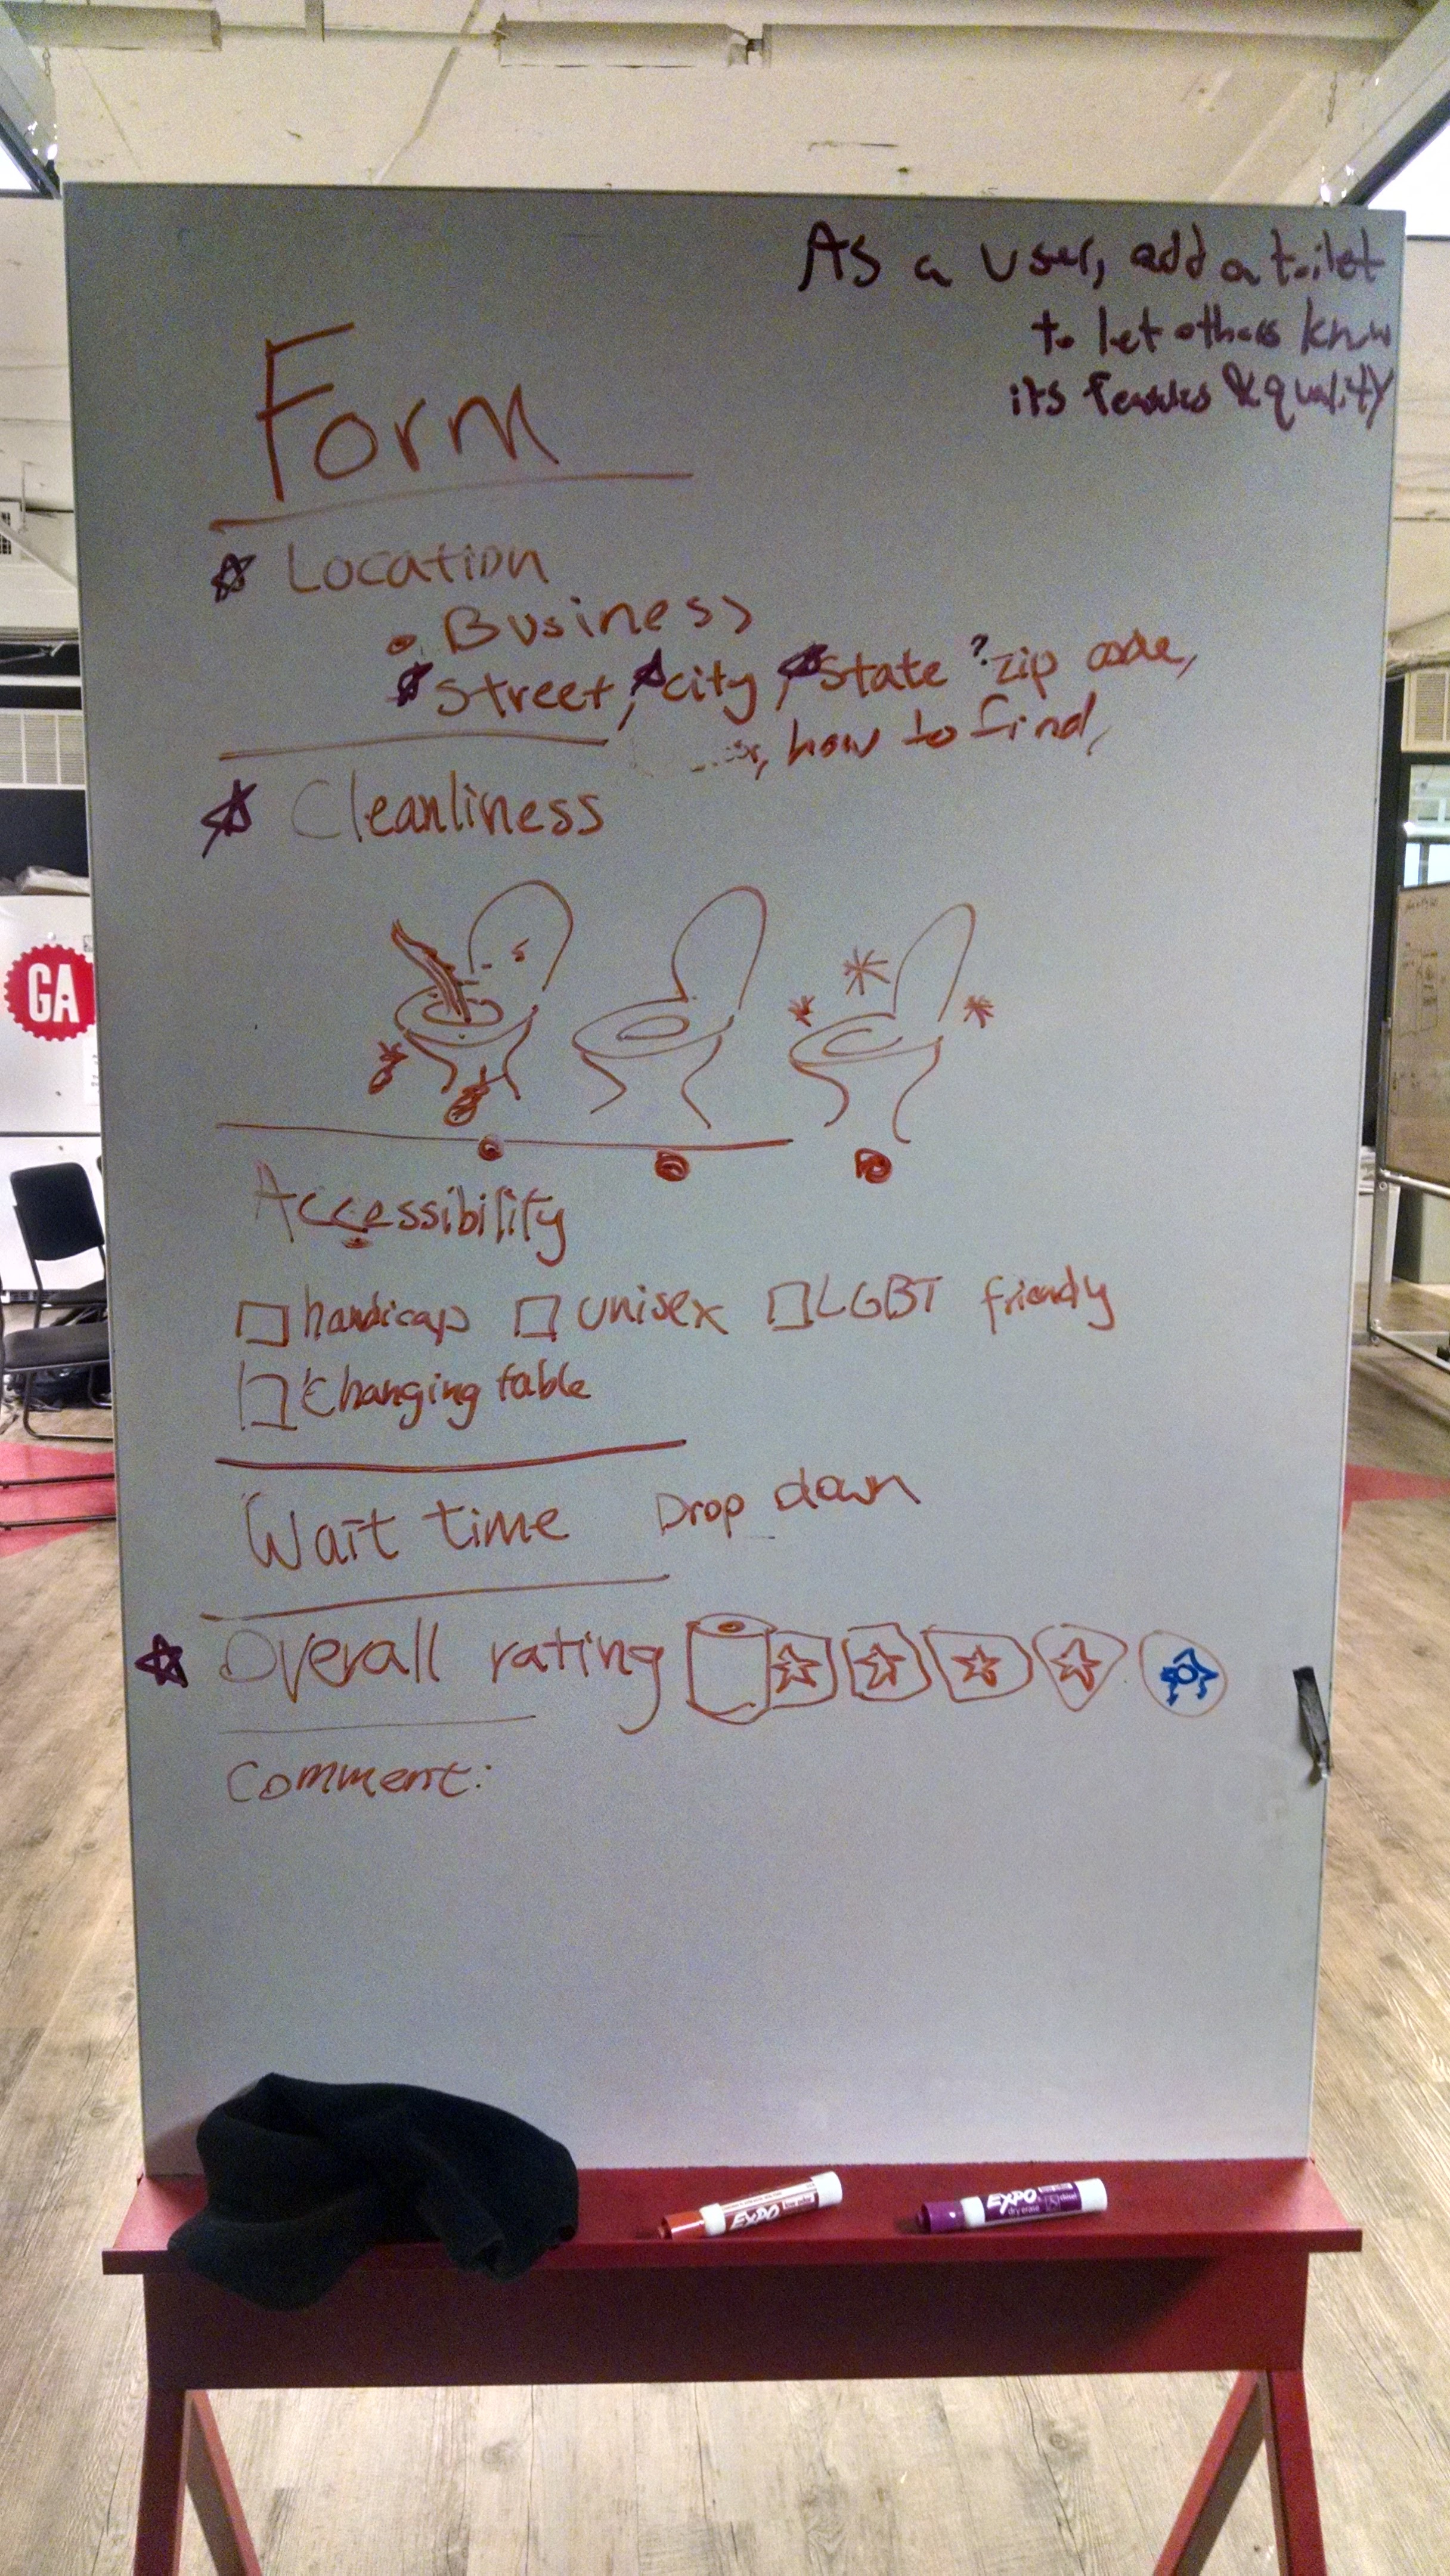 As a user, add a toilet
to let others know
its features & quality
Form
Location
Business
street, city, state ? zip code,
, how to find,
Cleanliness
Accessibility
handicap unisex LGBT friendly
Changing table
Wait time Drop down
Overall rating
Comment:
GA
EXPO
EXPO
dry erase